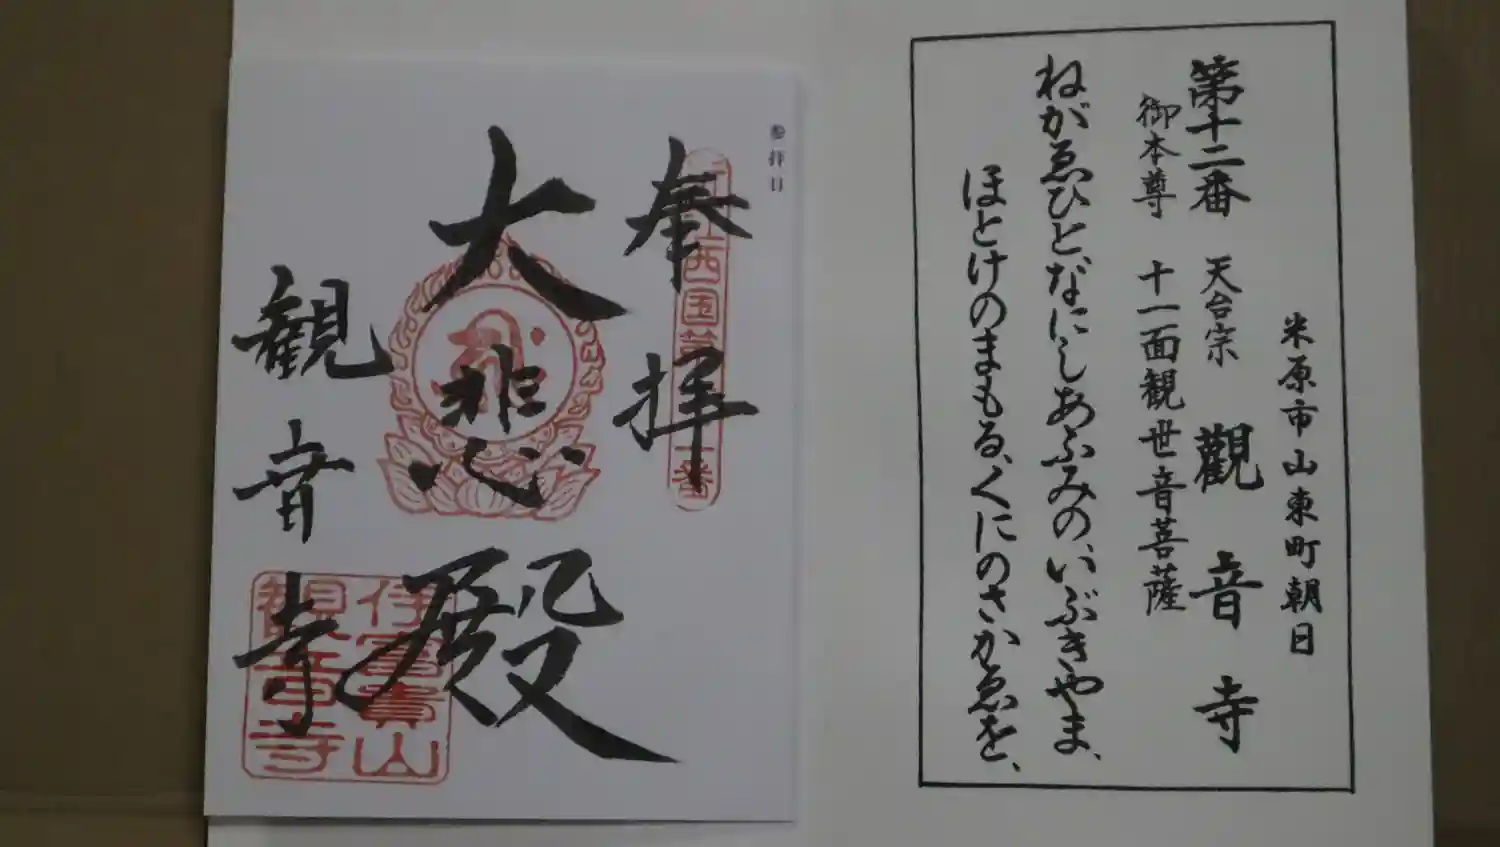 米原市山東町朝日
第十二番 天台宗 觀音寺
御本尊 十一面観世音菩薩
ねがゑひと、なにしあふみの、いぶきやま、
ほとけのまもる、くにのさかゑを、
参拝日
奉拝
江西国
番
大悲殿
観音寺
伊富貴山
観音寺